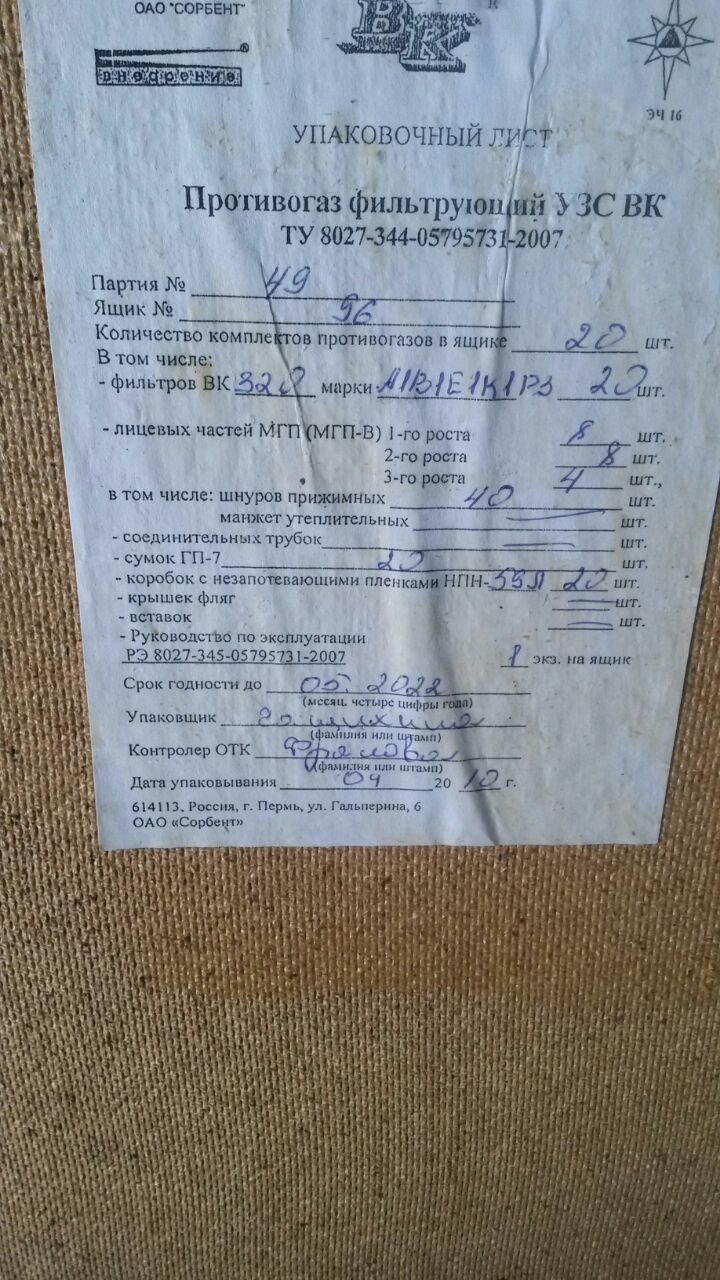 ОАО "СОРБЕНТ"
внедрение ®
ВК
ЭЧ 16
УПАКОВОЧНЫЙ ЛИСТ
Противогаз фильтрующий УЗС ВК
ТУ 8027-344-05795731-2007
Партия № 49
Ящик № 96
Количество комплектов противогазов в ящике 20 шт.
В том числе:
- фильтров ВК 320 марки А1В1Е1К1Р3 20 шт.
- лицевых частей МГП (МГП-В) 1-го роста 8 шт.
2-го роста 8 шт.
3-го роста 4 шт.,
в том числе: шнуров прижимных 40 шт.
манжет утеплительных — шт.
- соединительных трубок — шт.
- сумок ГП-7 20 шт.
- коробок с незапотевающими пленками НПН-59Л 20 шт.
- крышек фляг — шт.
- вставок — шт.
- Руководство по эксплуатации
РЭ 8027-345-05795731-2007 1 экз. на ящик
Срок годности до 05. 2022
(месяц, четыре цифры года)
Упаковщик
(фамилия или штамп)
Контролер ОТК Фролова
(фамилия или штамп)
Дата упаковывания 04 20 10 г.
614113, Россия, г. Пермь, ул. Гальперина, 6
ОАО «Сорбент»